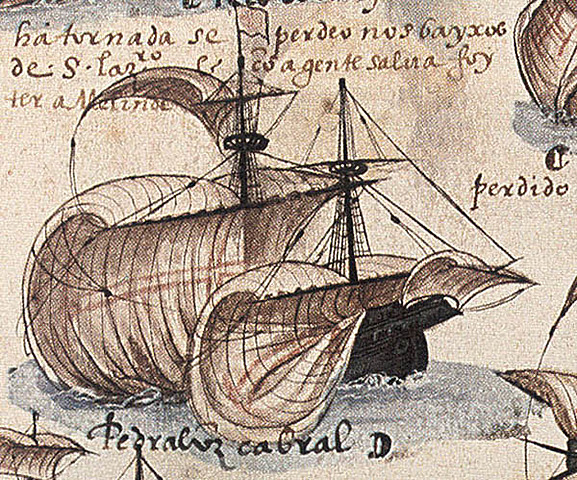 há tornada se perdeo nos bayxos
de S. lazro cō a gente salva foy
ter a Melinde
perdido
Pedralvz cabral D